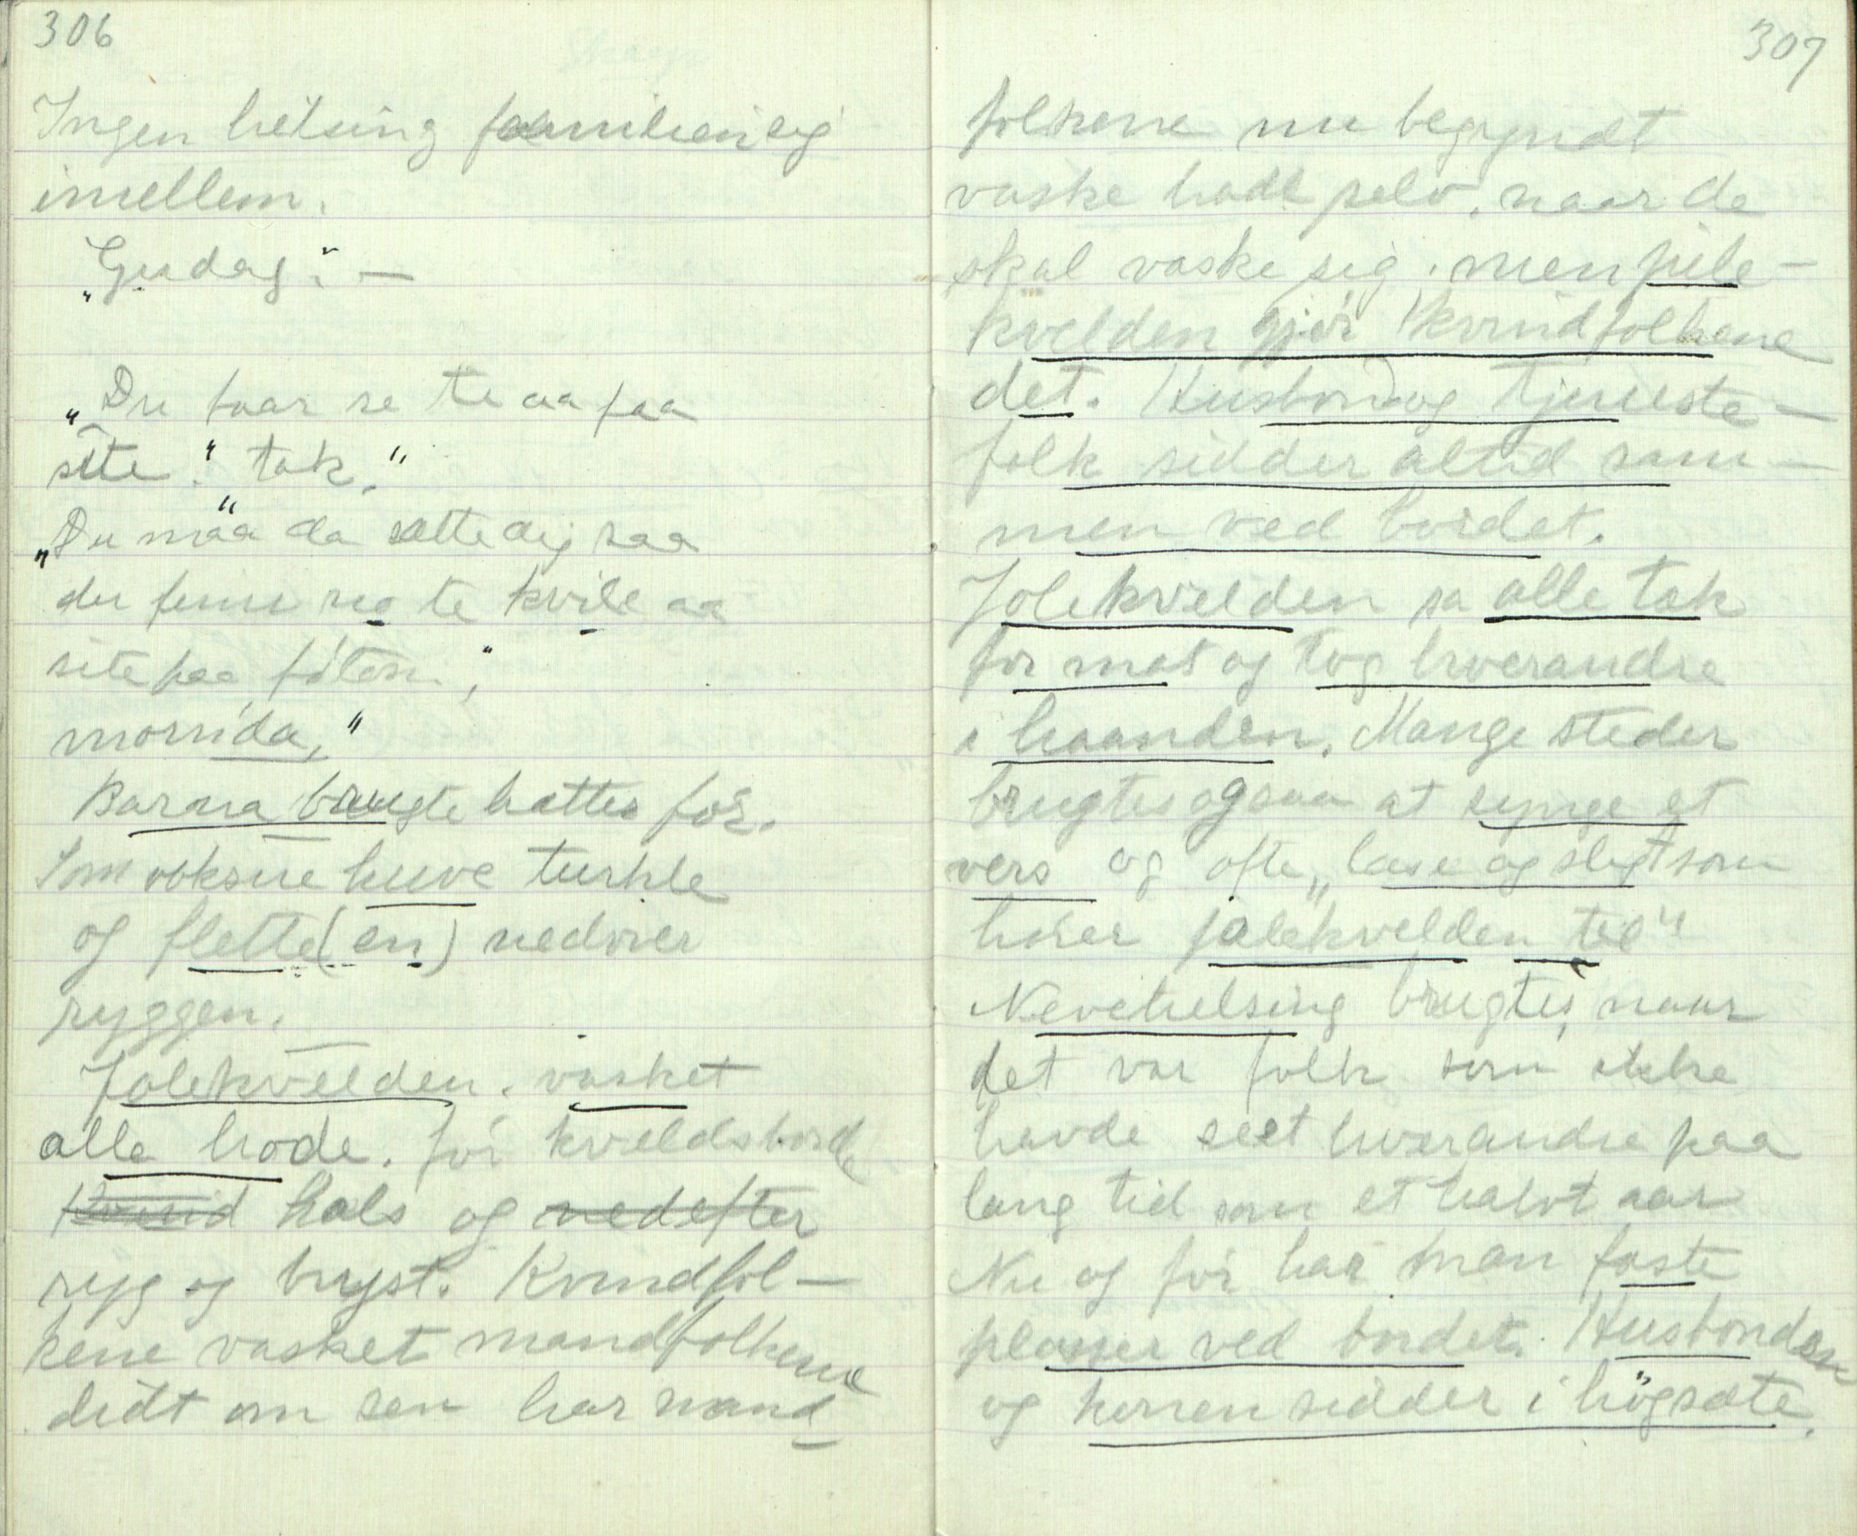 306
Ingen helsing familienlig
imellem.
"Gudag". —
"Du faar se te aa faa
site". "tak."
"Du maa da sætte dig saa
du finn no te kvile aa
site paa, føtom,"
mornida,"
Barna brugte hatter før.
Som voksne huve turkle
og flette(en) nedover
ryggen.
Jolekvelden. vasket
alle hode. før kveldsborde
Kvind hals og nedefter
ryg og bryst. Kvindfol-
kene vasket mandfolkene
didt om sen har mand
307
folkene nu begyndt
vaske hode selv. naar de
skal vaske sig. men jule-
kvelden gjør kvindfolkene
det. Husbond og tjeneste-
folk sidder altid sam-
men ved bordet.
Jolekvelden sa alle tak
for mat og tog hverandre
i haanden. Mange steder
brugtes ogsaa at synge et
vers og ofte "læse og sligt som
hører jolekvelden til"
Nevehelsing brugtes, naar
det var folk som ikke
havde seet hverandre paa
lang tid som et halvt aar
Nu og før har man faste
plasser ved bordet. Husbonden
og konen sidder i högsæte.